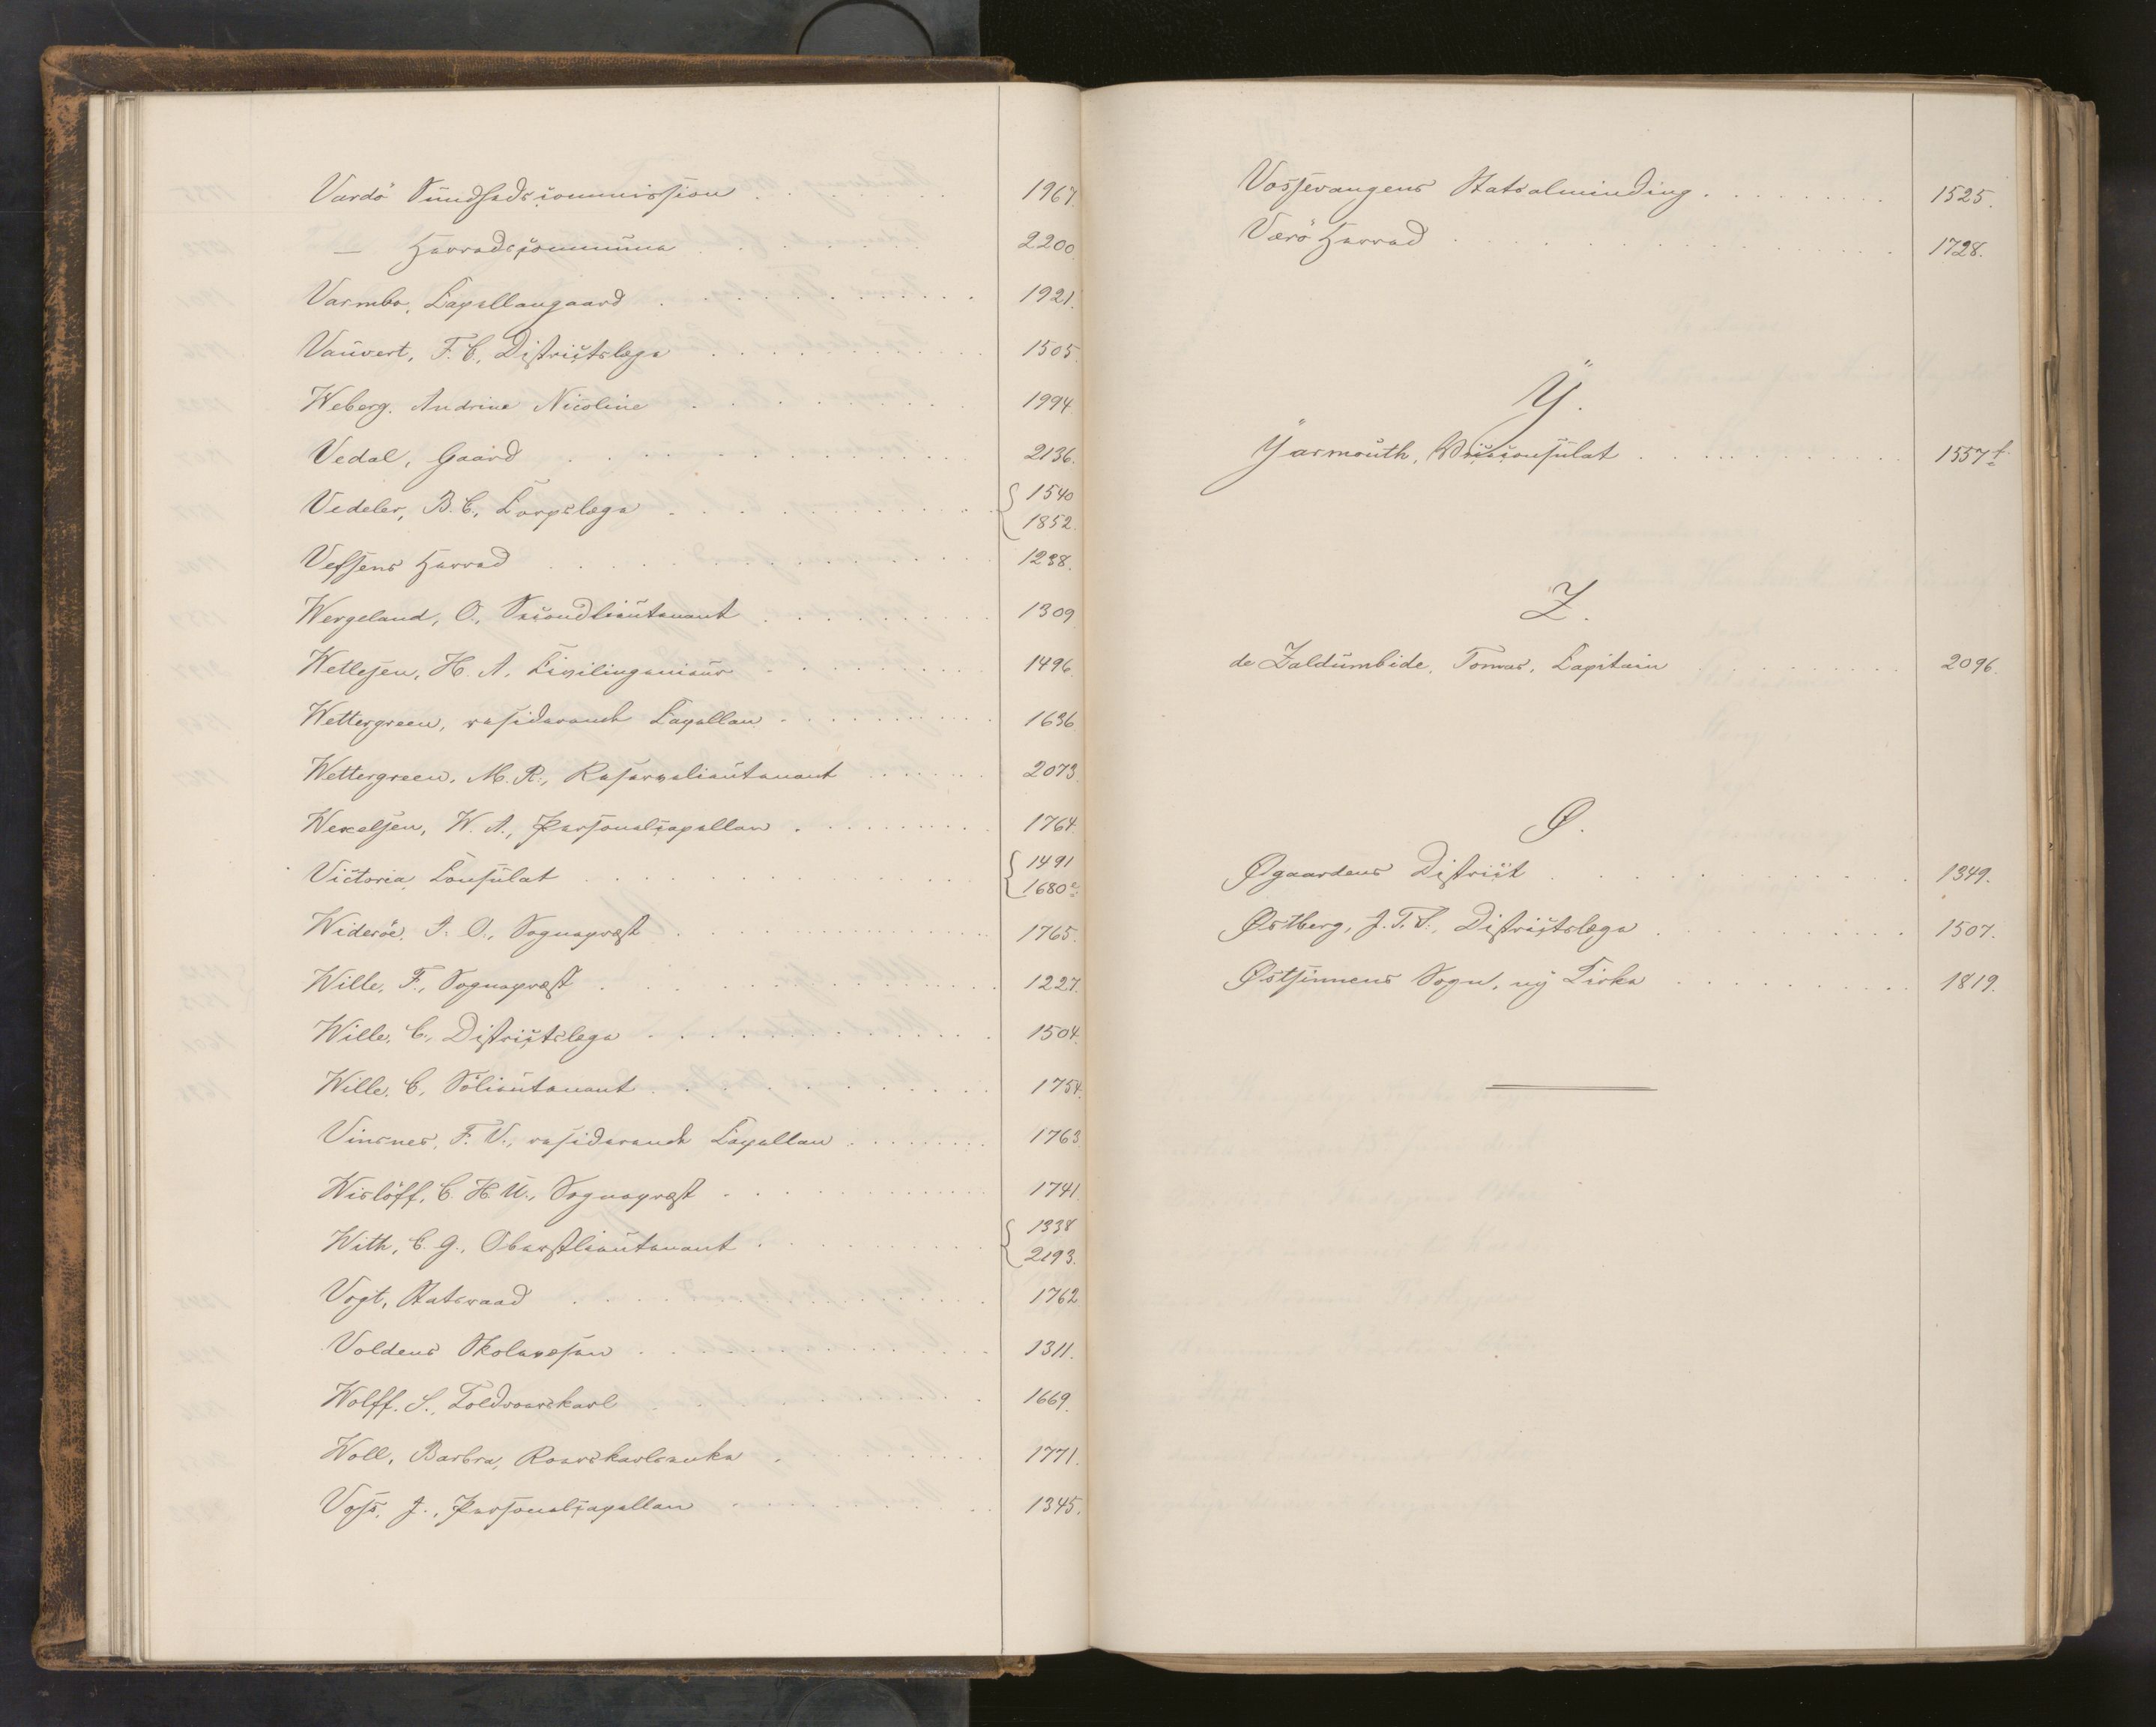 Vardö Sundhedscommission 1967.
— Herredscommune 2200.
Varmbo, Capellangaard 1921.
Vauvert, F. C., Districtslæge 1505.
Weberg, Andrine Nicoline 1994.
Vedal, Gaard 2136.
Vedeler, B. C., Corpslæge 1540
1852.
Vefsens Herred 1238.
Wergeland, O., Secondlieutenant 1309
Wetlesen, H. A. Civilingenieur 1496.
Wettergreen, residerende Capellan 1636
Wettergreen, M. R., Reservelieutenant 2073
Wexelsen, W. A., Personelcapellan 1764.
Victoria, Consulat 1491
1680
Wideröe, T. O., Sogneprest 1765.
Wille, F., Sogneprest 1227.
Wille, C., Districtslæge 1504.
Wille, C., Sölieutenant 1754.
Vinsnes, F. V., residerende Capellan 1763
Wislöff, C. H. U., Sogneprest 1741.
With, C. G., Oberstlieutenant 1338
2193.
Vogt, Statsraad 1762
Voldens Skolevesen 1311.
Wolff, S., Toldroerskarl 1669.
Woll, Barbra, Roerskarlsenke 1771.
Voss, J., Personelcapellan 1345.
Vossevangens Statsalminding 1525.
Værö Herred 1728.
Y.
Yarmouth, Viceconsulat 1557 f.
Z.
de Zaldumbide, Tomas, Capitain 2096.
Ø.
Øgaardens District 1349.
Østberg, J. T. S., Districtslæge 1507.
Østsinnens Sogn, ny Kirke 1819.